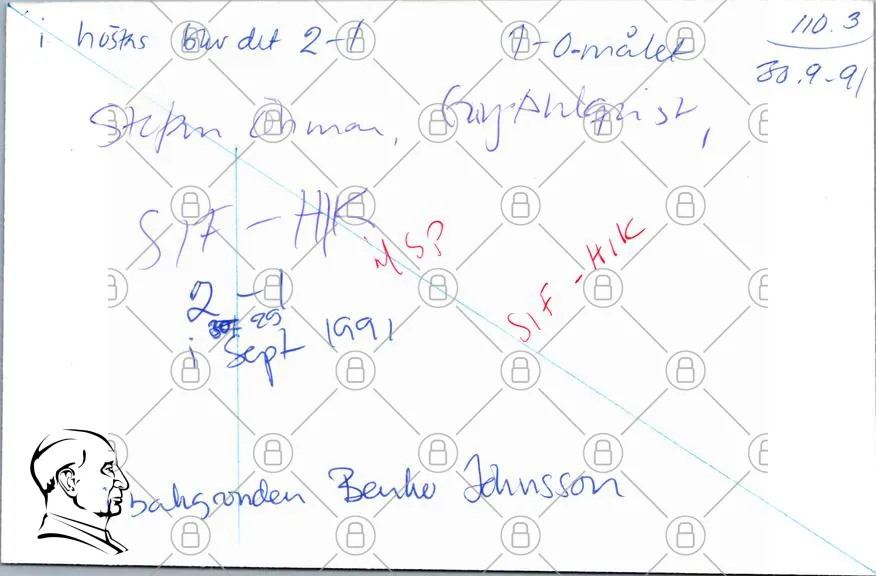 i höstas blev det 2-1
1-0-målet
110.3
30.9-91
Stefan Öhman, Guy Ahlqvist,
SIF - HIK
MSP
SIF - HIK
2-1
29
i Sept 1991
bakgrunden Benko Johnsson